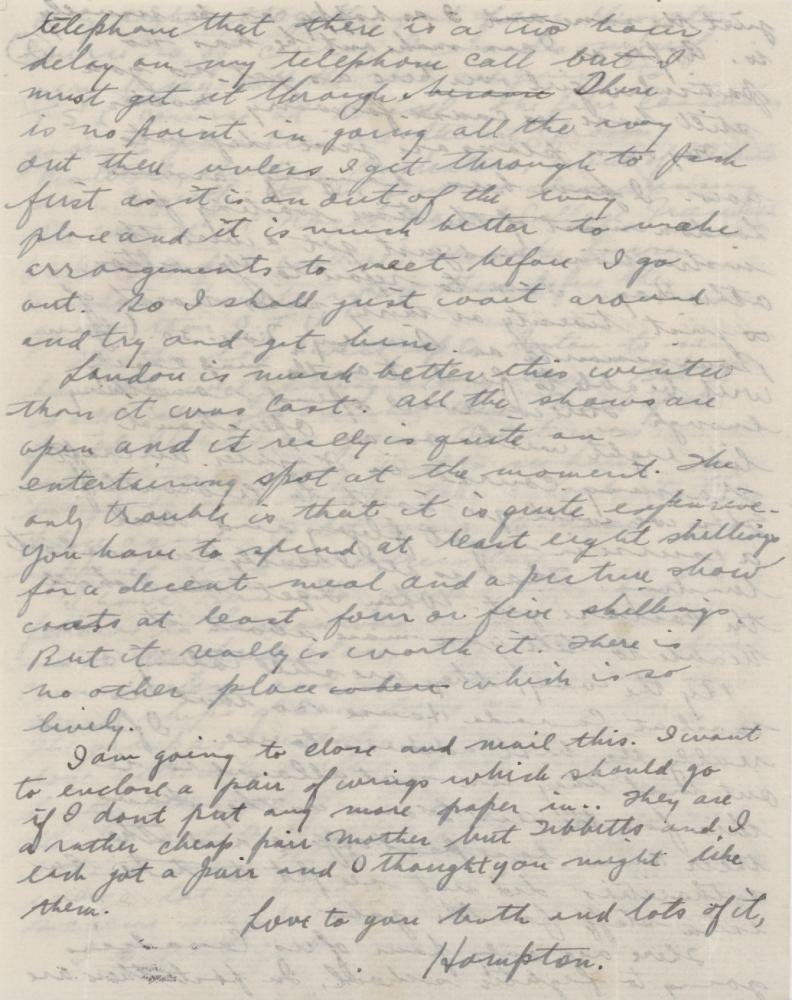 telephone that there is a two hour
delay on my telephone call but I
must get it through because There
is no point in going all the way
out there unless I get through to Jack
first as it is an out of the way
place and it is much better to make
arrangements to meet before I go
out. So I shall just wait around
and try and get him.
London is much better this winter
than it was last. All the shows are
open and it really is quite an
entertaining spot at the moment. The
only trouble is that it is quite expensive -
you have to spend at least eight shillings
for a decent meal and a picture show
costs at least four or five shillings.
But it really is worth it. There is
no other place where which is so
lively.
I am going to close and mail this. I want
to enclose a pair of wings which should go
if I dont put any more paper in.. They are
a rather cheap pair Mother but Tibbetts and I
each got a pair and I thought you might like
them.
Love to you both and lots of it,
Hampton.